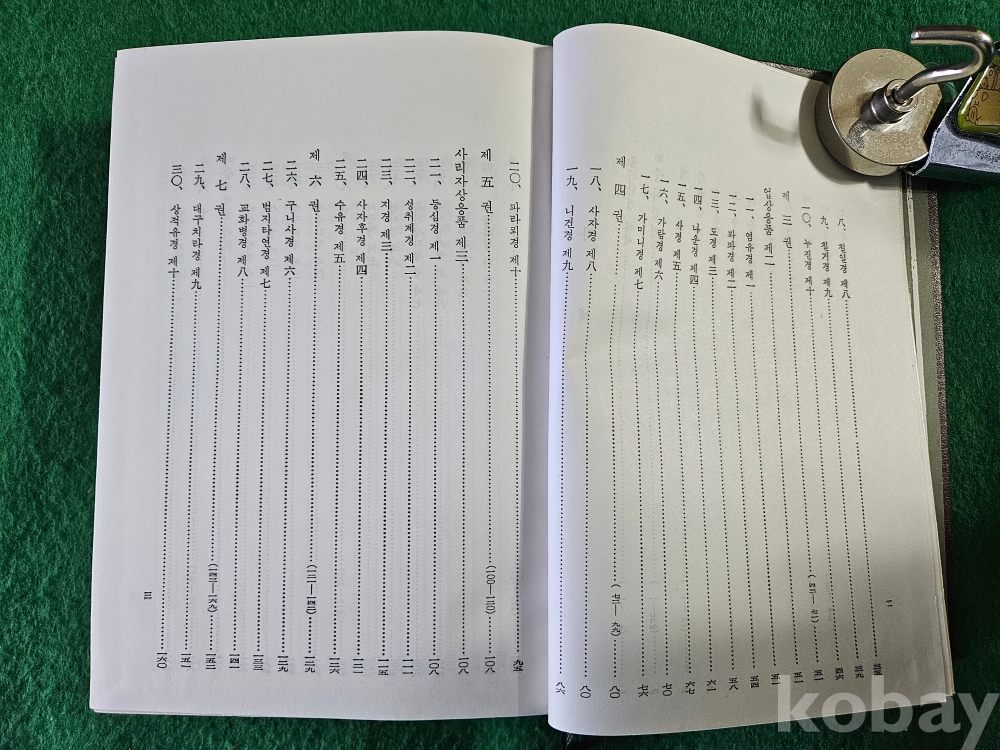 八、칠일경 제八
九、칠거경 제九
一〇、누진경 제十 四六
제 三 권 五一
업상응품 제二 五一
一一、염유경 제一 五一
一二、화파경 제二 五四
一三、도경 제三 五八
一四、나운경 제四 六一
一五、사경 제五 六七
一六、가람경 제六 七〇
一七、가미니경 제七 七六
제 四 권 八〇
一八、사자경 제八 八〇
一九、니건경 제九 八六
二
二〇、파라뢰경 제十 九五
제 五 권 一〇八
사리자상응품 제三 一〇八
二一、등심경 제一 一〇八
二二、성취계경 제二 一一一
二三、지경 제三 一一五
二四、사자후경 제四 一二一
二五、수유경 제五 一二六
제 六 권 一二九
二六、구니사경 제六 一二九
二七、범지타연경 제七 一三三
二八、교화병경 제八 一四一
제 七 권
二九、대구치라경 제九
三〇、상적유경 제十 一六〇
三
kobay